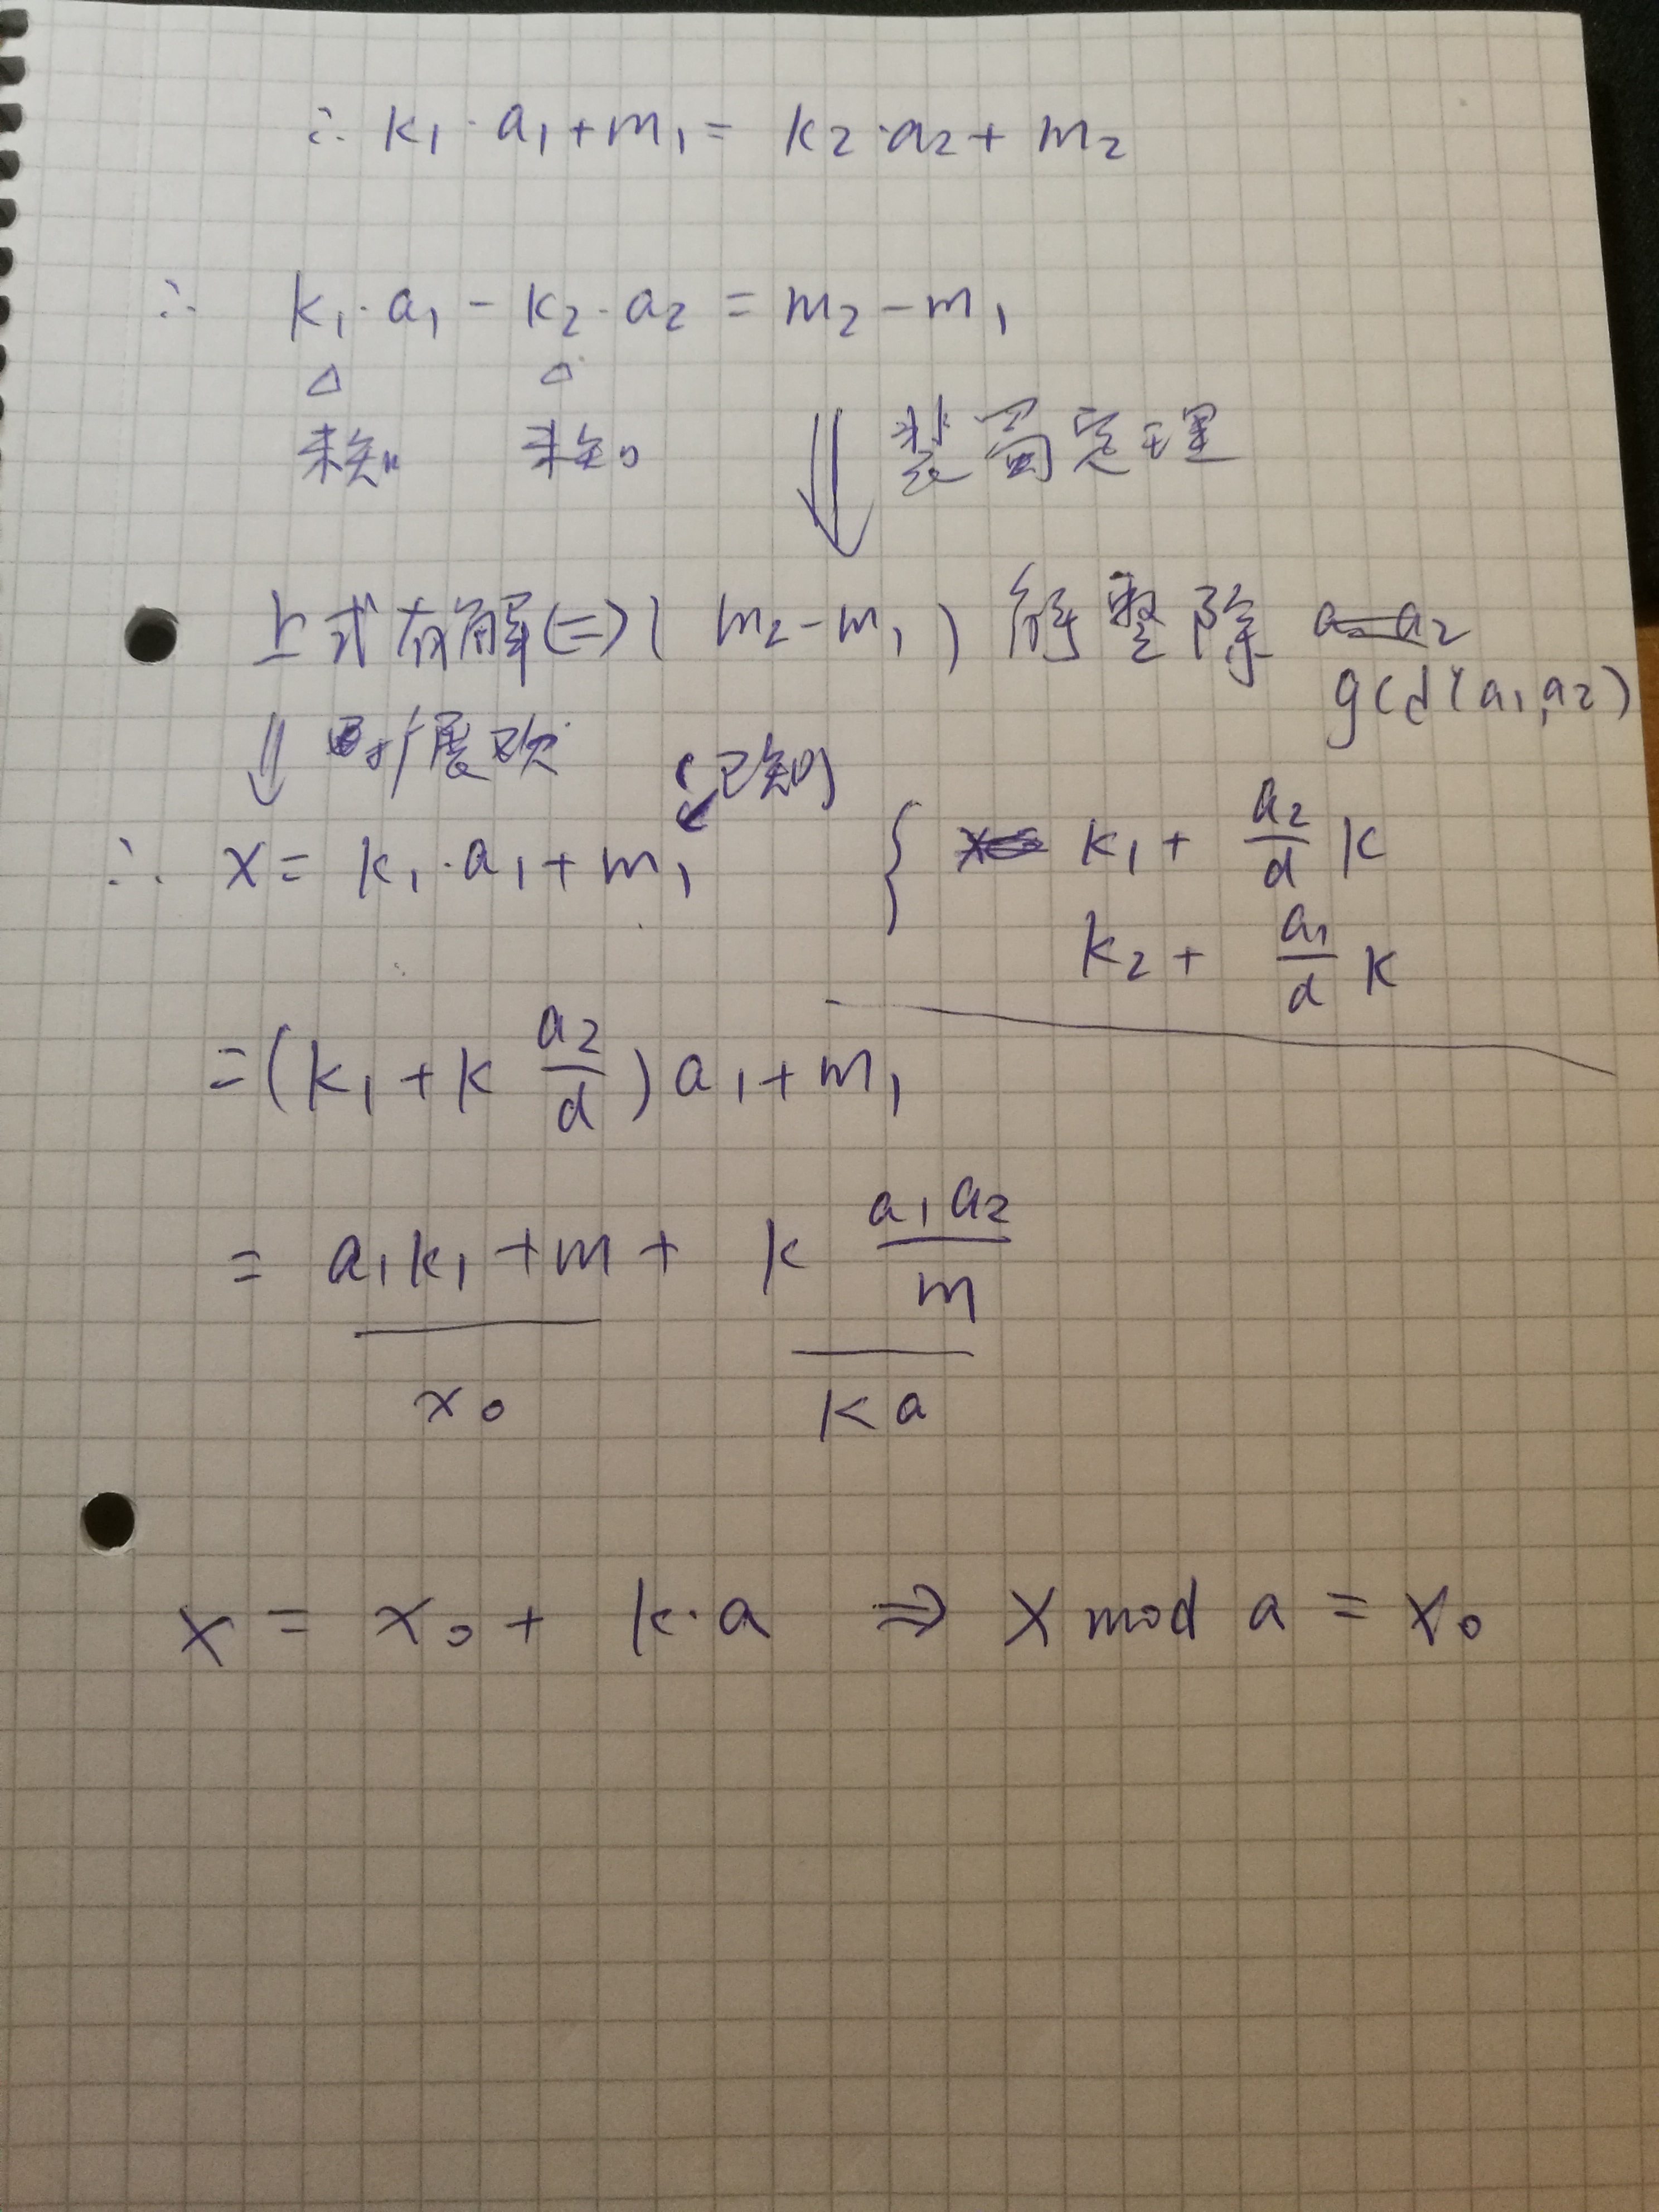 ∴ k₁·a₁+m₁ = k₂·a₂+m₂
∴ k₁·a₁-k₂·a₂ = m₂-m₁
△ △
未知 未知 裴蜀定理
上式有解⟺(m₂-m₁)能整除
gcd(a₁,a₂)
⇓ 扩展欧 (已知)
∴ x = k₁·a₁+m₁ { k₁+ a₂/d k
k₂+ a₁/d k
=(k₁+k a₂/d)a₁+m₁
= a₁k₁+m+ k a₁a₂/m
x₀ ka
x = x₀+ k·a ⇒ x mod a = x₀